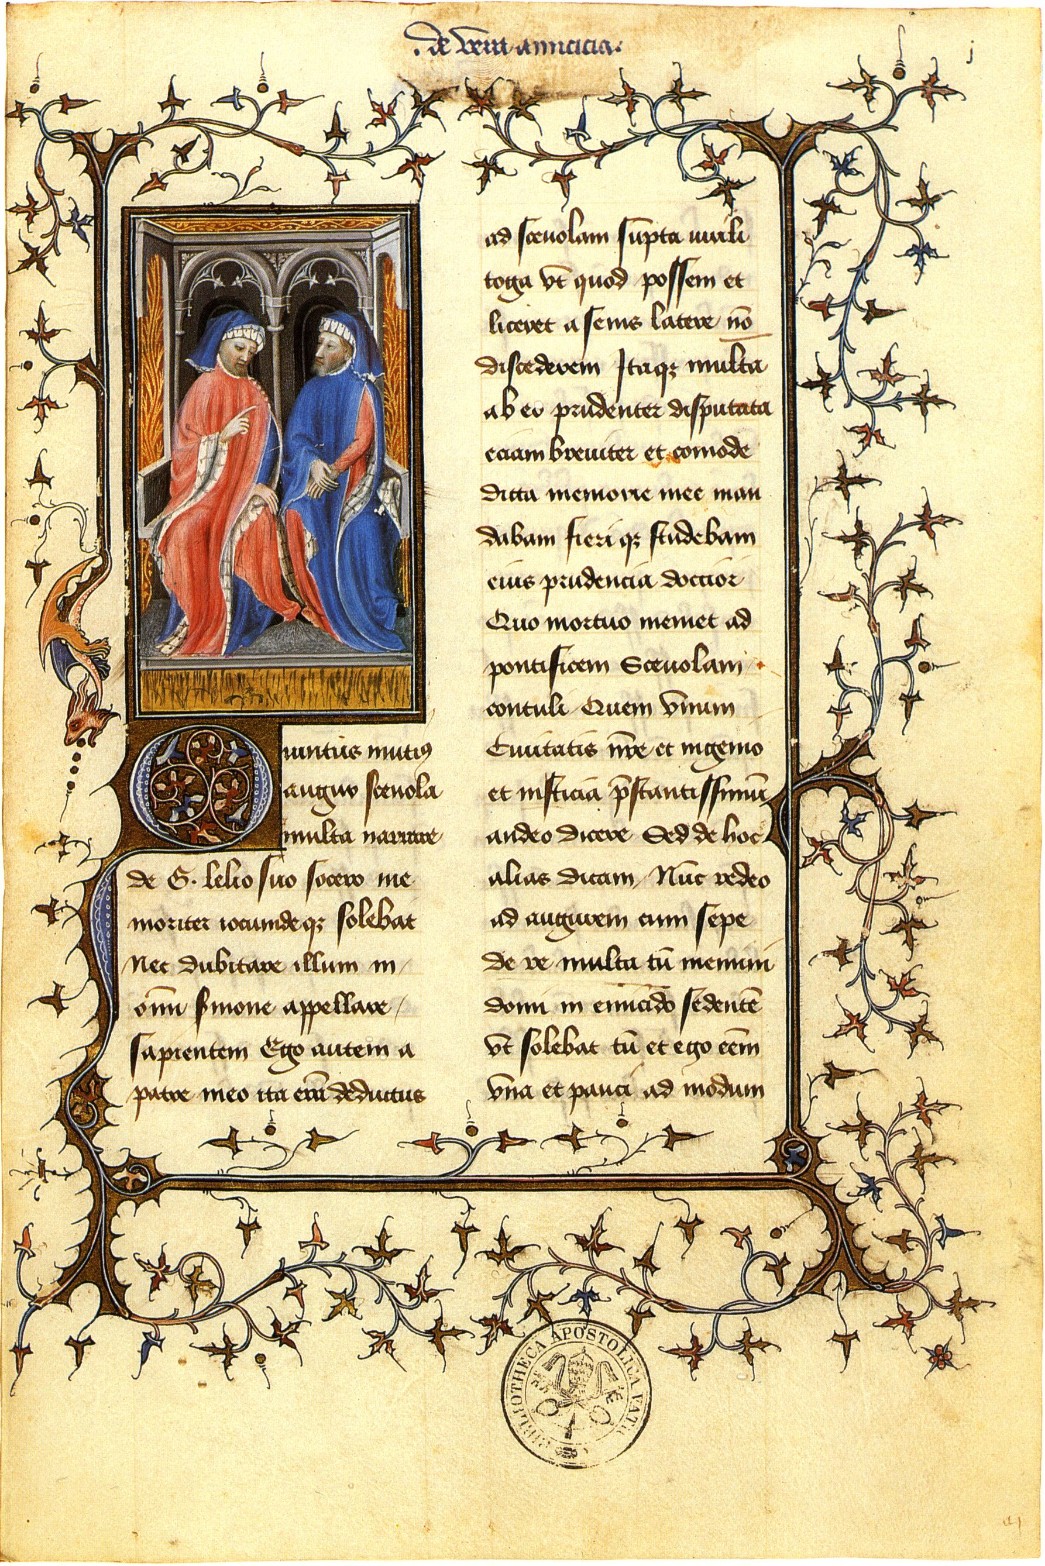 .de vera amicicia.
j
Quintus mutius
augur scevola
multa narrare
de G. lelio suo socero me
moriter iocundeqz solebat
Nec dubitare illum in
omni sermone appellare
sapientem Ego autem a
patre meo ita eram deductus
ad scevolam supta virili
toga vt quod possem et
liceret a senis latere nō
discederem Itaqz multa
ab eo prudenter disputata
eciam breviter et comode
dicta memorie mee man
dabam fieriqz studebam
eius prudencia doctior
Quo mortuo memet ad
pontificem Scevolam
contuli Quem vnum
Civitatis nr̄e et ingenio
et iusticia p̄stantissimū
audeo dicere Sed de hoc
alias dicam Nūc redeo
ad augurem cum sepe
de re multa tū memini
domi in emicido sedentē
vt solebat tū et ego eēm
vna et pauci ad modum
BIBLIOTHECA APOSTOLICA VATIC